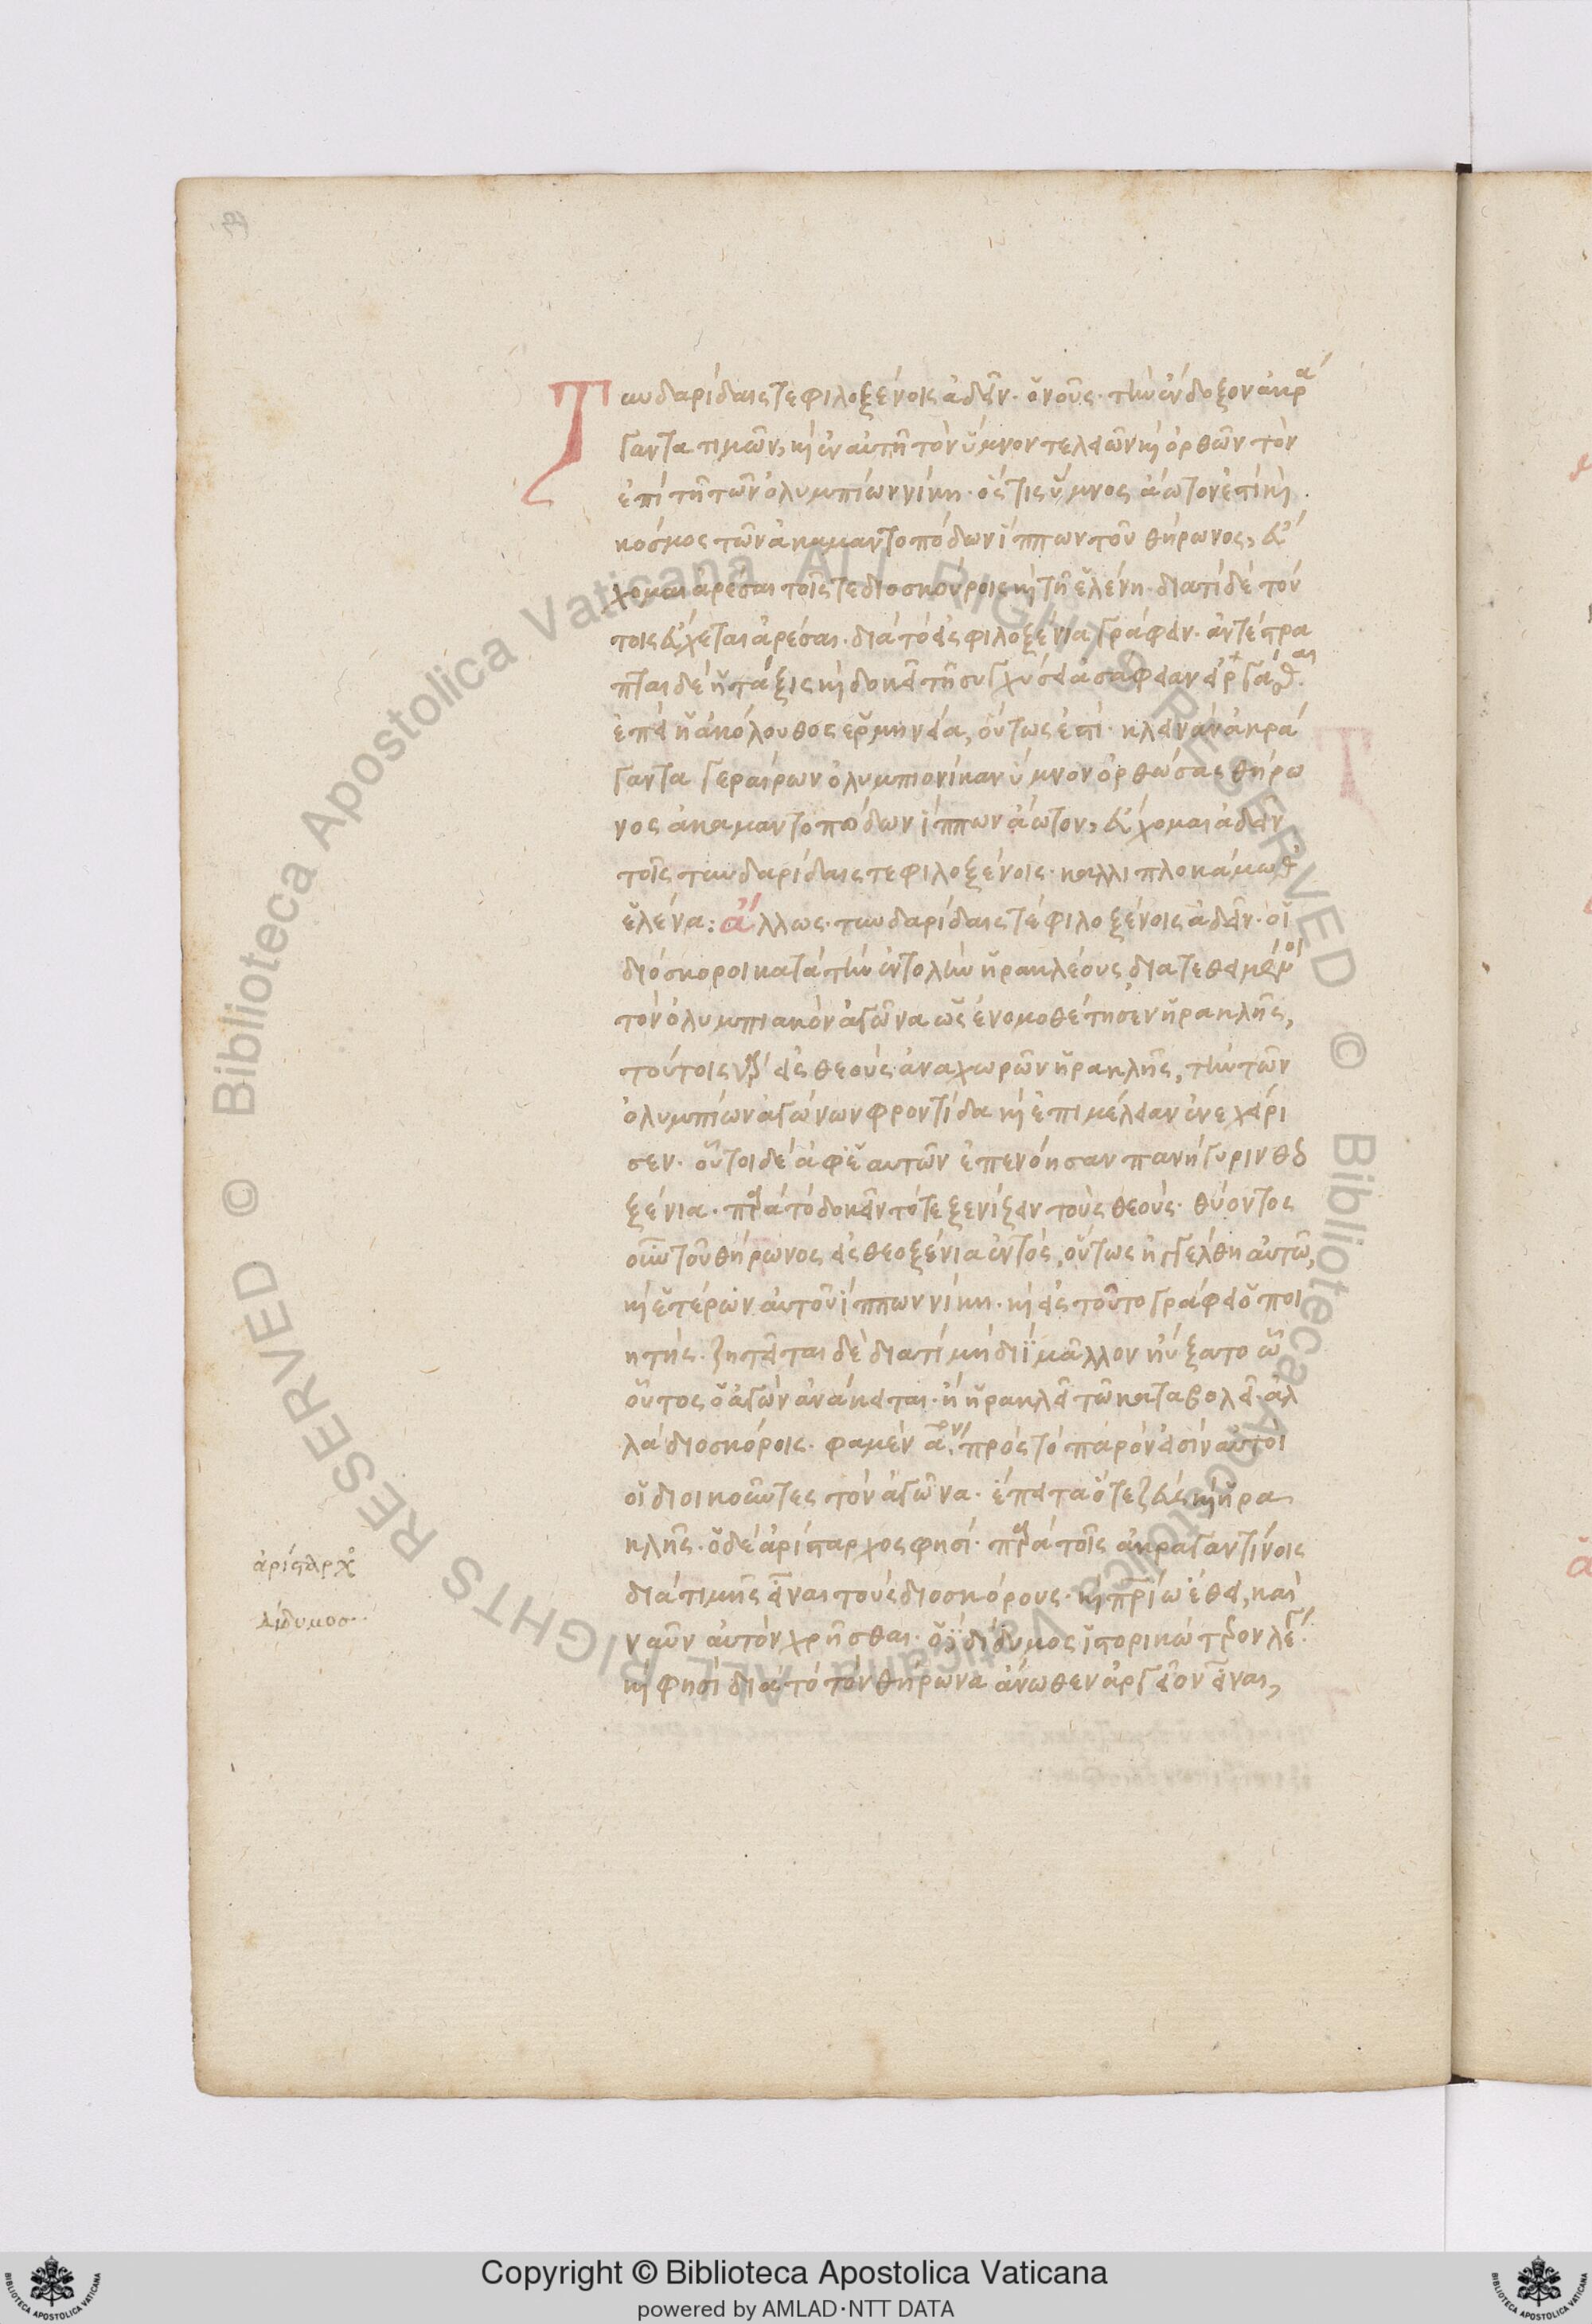 Τυνδαρίδαις τε φιλοξείνοις ἁδεῖν· ὁ νοῦς· τὴν ἔνδοξον ἀκρά
γαντα τιμῶν, καὶ ἐν αὐτῇ τὸν ὕμνον τελειῶν καὶ ὀρθῶν τὸν
ἐπὶ τῇ τῶν ὀλυμπίων νίκῃ· ὅστις ὕμνος ἄωτον ἐστὶ καὶ
κόσμος τῶν ἀκαμαντοπόδων ἵππων τοῦ θήρωνος, εὔ
χομαι ἀρέσαι τοῖς τε διοσκούροις καὶ τῇ ἑλένῃ· διατί δὲ τού
τοις εὔχεται ἀρέσαι· διὰ τὸ εἰς φιλοξενία γράφειν· ἀντέστρα
πται δὲ ἡ τάξις καὶ δοκεῖ τῇ συγχύσει ἀσάφειαν εἰργάσθαι
ἐπεὶ ἡ ἀκόλουθος ἑρμηνεία, οὕτως ἐστί· κλεινὰν ἀκρά
γαντα γεραίρων ὀλυμπιονίκαν ὕμνον ὀρθώσας θήρω
νος ἀκαμαντοπόδων ἵππων ἄωτον, εὔχομαι ἁδεῖν
τοῖς τυνδαρίδαις τε φιλοξένοις· καλλιπλοκάμω θ'
ἑλένα: ἄλλως· τυνδαρίδαις τε φιλοξένοις ἁδεῖν· οἱ
διόσκοροι κατὰ τὴν ἐντολὴν ἡρακλέους διατεθειμένοι
τὸν ὀλυμπιακὸν ἀγῶνα ὡς ἐνομοθέτησεν ἡρακλῆς,
τούτοις γὰρ εἰς θεοὺς ἀναχωρῶν ἡρακλῆς, τὴν τῶν
ὀλυμπίων ἀγώνων φροντίδα καὶ ἐπιμέλειαν ἐνεχείρι
σεν· οὗτοι δὲ ἀφ' ἑαυτῶν ἐπενόησαν πανήγυριν θεο
ξένια· παρὰ τὸ δοκεῖν τότε ξενίζειν τοὺς θεούς· θύοντος
οὖν τοῦ θήρωνος εἰς θεοξένια ἐντὸς, οὕτως ἠγγέλθη αὐτῷ,
καὶ ἑτέρων αὐτοῦ ἵππων νίκη· καὶ εἰς τοῦτο γράφει ὁ ποι
ητής· ζητεῖται δὲ διατί μὴ διῒ μᾶλλον ηὔξατο ᾧ
οὗτος ὁ ἀγὼν ἀνάκειται· ἢ ἡρακλεῖ τῷ καταβολεῖ· ἀλ
λὰ διοσκόροις· φαμὲν πρὸς τὸ παρόν εἰσιν αὐτοὶ
οἱ διοικοῦντες τὸν ἀγῶνα· ἔπειτα ὅ τε ζεὺς καὶ ἡρα
κλῆς· ὁ δὲ ἀρίσταρχος φησί· παρὰ τοῖς ἀκραγαντίνοις
διὰ τιμῆς εἶναι τοὺς διοσκόρους· καὶ πατρίῳ ἔθει, καὶ
νῦν αὐτὸν χρῆσθαι· ὁ δὲ δίδυμος ἱστορικώτερον λέγει
καὶ φησὶ διὰ τὸ τὸν θήρωνα ἄνωθεν ἀργεῖον εἶναι,
ἀρίσταρχος
δίδυμος
Copyright © Biblioteca Apostolica Vaticana
powered by AMLAD·NTT DATA